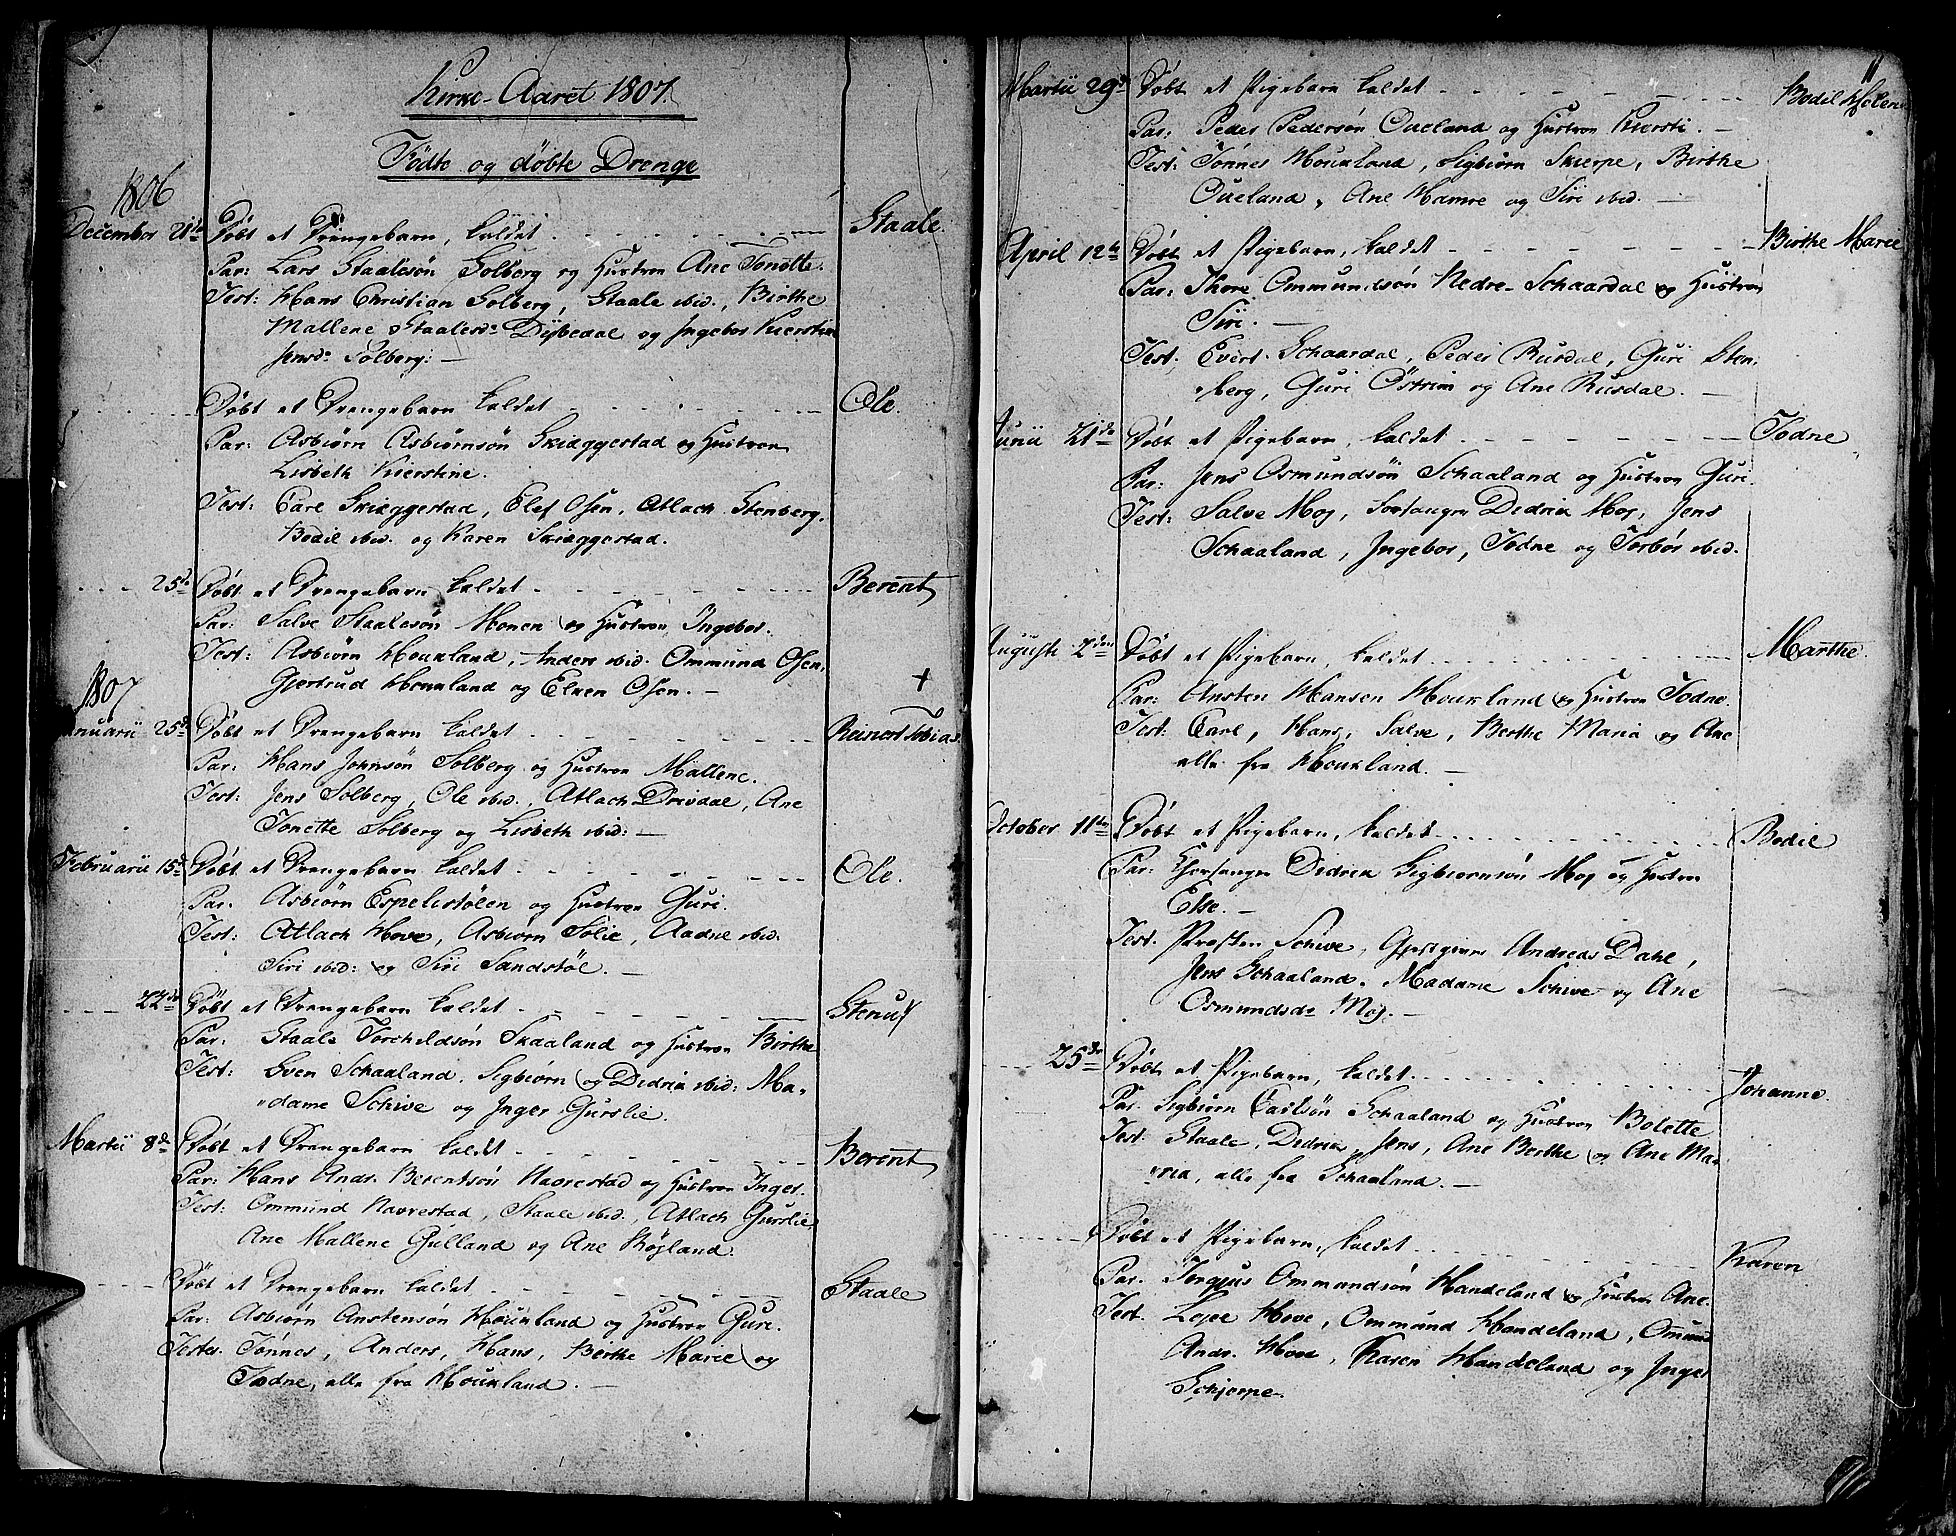 Kirke-Aaret 1807.
Födte og döbte Drenge
1806
December 21de Döbt et Drengebarn, kaldet Staale.
Par: Lars Staalesön Solberg og Hustroe Ane Tonette.
Test: Hans Christian Solberg, Staale ibid., Birthe
Mallene Staalesdr Dybedal og Ingebor Kierstine
Jensdr Solberg:
Döbt et Drengebarn kaldet Ole.
Par: Asbiörn Asbiörnsön Skiæggestad og Hustroe
Lisbeth Kierstine.
Test: Carl Skiæggestad, Elef Osen, Atlach Stenberg.
Bodil ibid. og Karen Skiæggestad.
25de Döbt et Drengebarn kaldet Berent
Par: Salve Staalesön Monen og Hustroe Ingebor.
Test: Asbiörn Houkland, Anders ibid. Ommund Osen,
Gjertrud Houkland og Elen Osen.
+
1807
Januarii 25de Döbt et Drengebarn kaldet Reinert Tobias.
Par: Hans Johnsön Solberg og Hustroe Mallene.
Test: Jens Solberg, Ole ibid., Atlach Drivdal, Ane
Tonette Solberg og Lisbeth ibid:
Februarii 15de Döbt et Drengebarn kaldet Ole.
Par. Asbiörn Espelistölen og Hustroe Guri.
Test: Atlach Hove, Asbiörn Solie, Aadne ibid.
Siri ibid: og Siri Sandstöl.
22de Döbt et Drengebarn kaldet
Par: Staale Torkeldsön Skaaland og Hustroe Birthe
Test: Sven Schaaland, Sigbiörn og Didrik ibid: Ma-
dame Schive og Inger Gurslie.
Martii 8de Döbt et Drengebarn kaldt Berent
Par: Hans Andr. Berentsön Navrestad og Hustroe Inger.
Test: Ommund Navrestad, Staale ibid., Atlach Gurslie,
Ane Mallene Gulland og Ane Röyland.
Döbt et Drengebarn kaldet Staale
Par: Asbiörn Anstensön Houkland og Hustroe Guri.
Testes. Tönnes, Anders, Hans, Berthe Marie og
Todne, alle fra Houkland.
11
Martii 29de Döbt et Pigebarn kaldet Bodil Helene
Par: Peder Pedersön Oueland og Hustroe Kiersti.
Test: Tönnes Houkland, Sigbiörn Skierpe, Birthe
Oueland, Ane Hamre og Siri ibid.
April 12te Döbt et Pigebarn, kaldet Birthe Marie
Par: Thore Ommundsön Nedre-Schaardal og Hustroe
Siri.
Test. Evert Schaardal, Peder Rusdal, Guri Sten-
berg, Guri Östrim og Ane Rusdal.
Junii 21de Döbt et Pigebarn, kaldet Todne
Par: Jens Osmundsön Schaaland og Hustroe Guri.
Test: Salve Moj, Didrik Moj, Jens
Schaaland, Ingebor, Todne og Torbör ibid.
Augusti 2den Döbt et Pigebarn, kaldet Marthe.
Par: Ansten Hansen Houkland og Hustroe Todne.
Test: Carl, Hans, Salve, Berthe Maria og Ane
alle fra Houkland.
October 11te Döbt et Pigebarn, kaldet Bodil
Par: Didrik Sigbiörnsön Moj og Hustroe
Else.
Test. Præsten Schive, Gjestgiver Andreas Dahl,
Jens Schaaland, Madame Schive og Ane
Osmundsdr Moj.
25de Döbt et Pigebarn, kaldet Johanne
Par. Sigbiörn Carlsön Schaaland og Hustroe Bolette
Test: Staale, Didrik, Jens, Ane Berthe og Ane Ma-
ria, alle fra Schaaland.
Döbt et Pigebarn, kaldet Karen
Par. Torgjus Ommundsön Handeland og Hustroe Ane.
Test. Hove, Ommund Handeland, Omund
Andr. Hove, Karen Handeland og Inger
Schjerpe